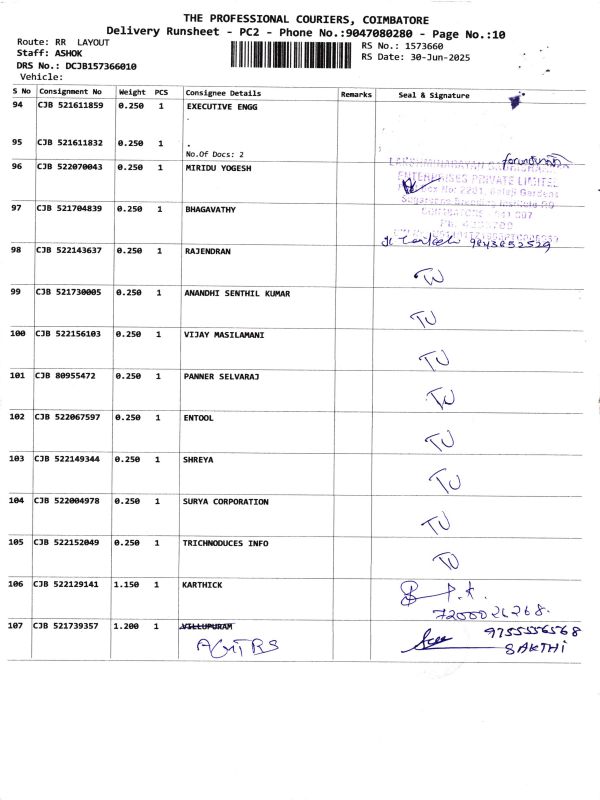 THE PROFESSIONAL COURIERS, COIMBATORE
Delivery Runsheet - PC2 - Phone No.:9047080280 - Page No.:10
Route: RR LAYOUT
RS No.: 1573660
Staff: ASHOK
RS Date: 30-Jun-2025
DRS No.: DCJB157366010
Vehicle:
S No Consignment No Weight PCS Consignee Details Remarks Seal & Signature
94 CJB 521611859 0.250 1 EXECUTIVE ENGG
95 CJB 521611832 0.250 1 .
No.Of Docs: 2
96 CJB 522070043 0.250 1 MIRIDU YOGESH
ENTERPRISES PRIVATE LIMITED
97 CJB 521704839 0.250 1 BHAGAVATHY
98 CJB 522143637 0.250 1 RAJENDRAN
TU
99 CJB 521730005 0.250 1 ANANDHI SENTHIL KUMAR
TU
100 CJB 522156103 0.250 1 VIJAY MASILAMANI
TU
101 CJB 80955472 0.250 1 PANNER SELVARAJ
TU
102 CJB 522067597 0.250 1 ENTOOL
TU
103 CJB 522149344 0.250 1 SHREYA
TU
104 CJB 522004978 0.250 1 SURYA CORPORATION
TU
105 CJB 522152049 0.250 1 TRICHNODUCES INFO
TU
106 CJB 522129141 1.150 1 KARTHICK
P.K.
7200026268.
107 CJB 521739357 1.200 1 VILLUPURAM
9755556568
SAKTHI